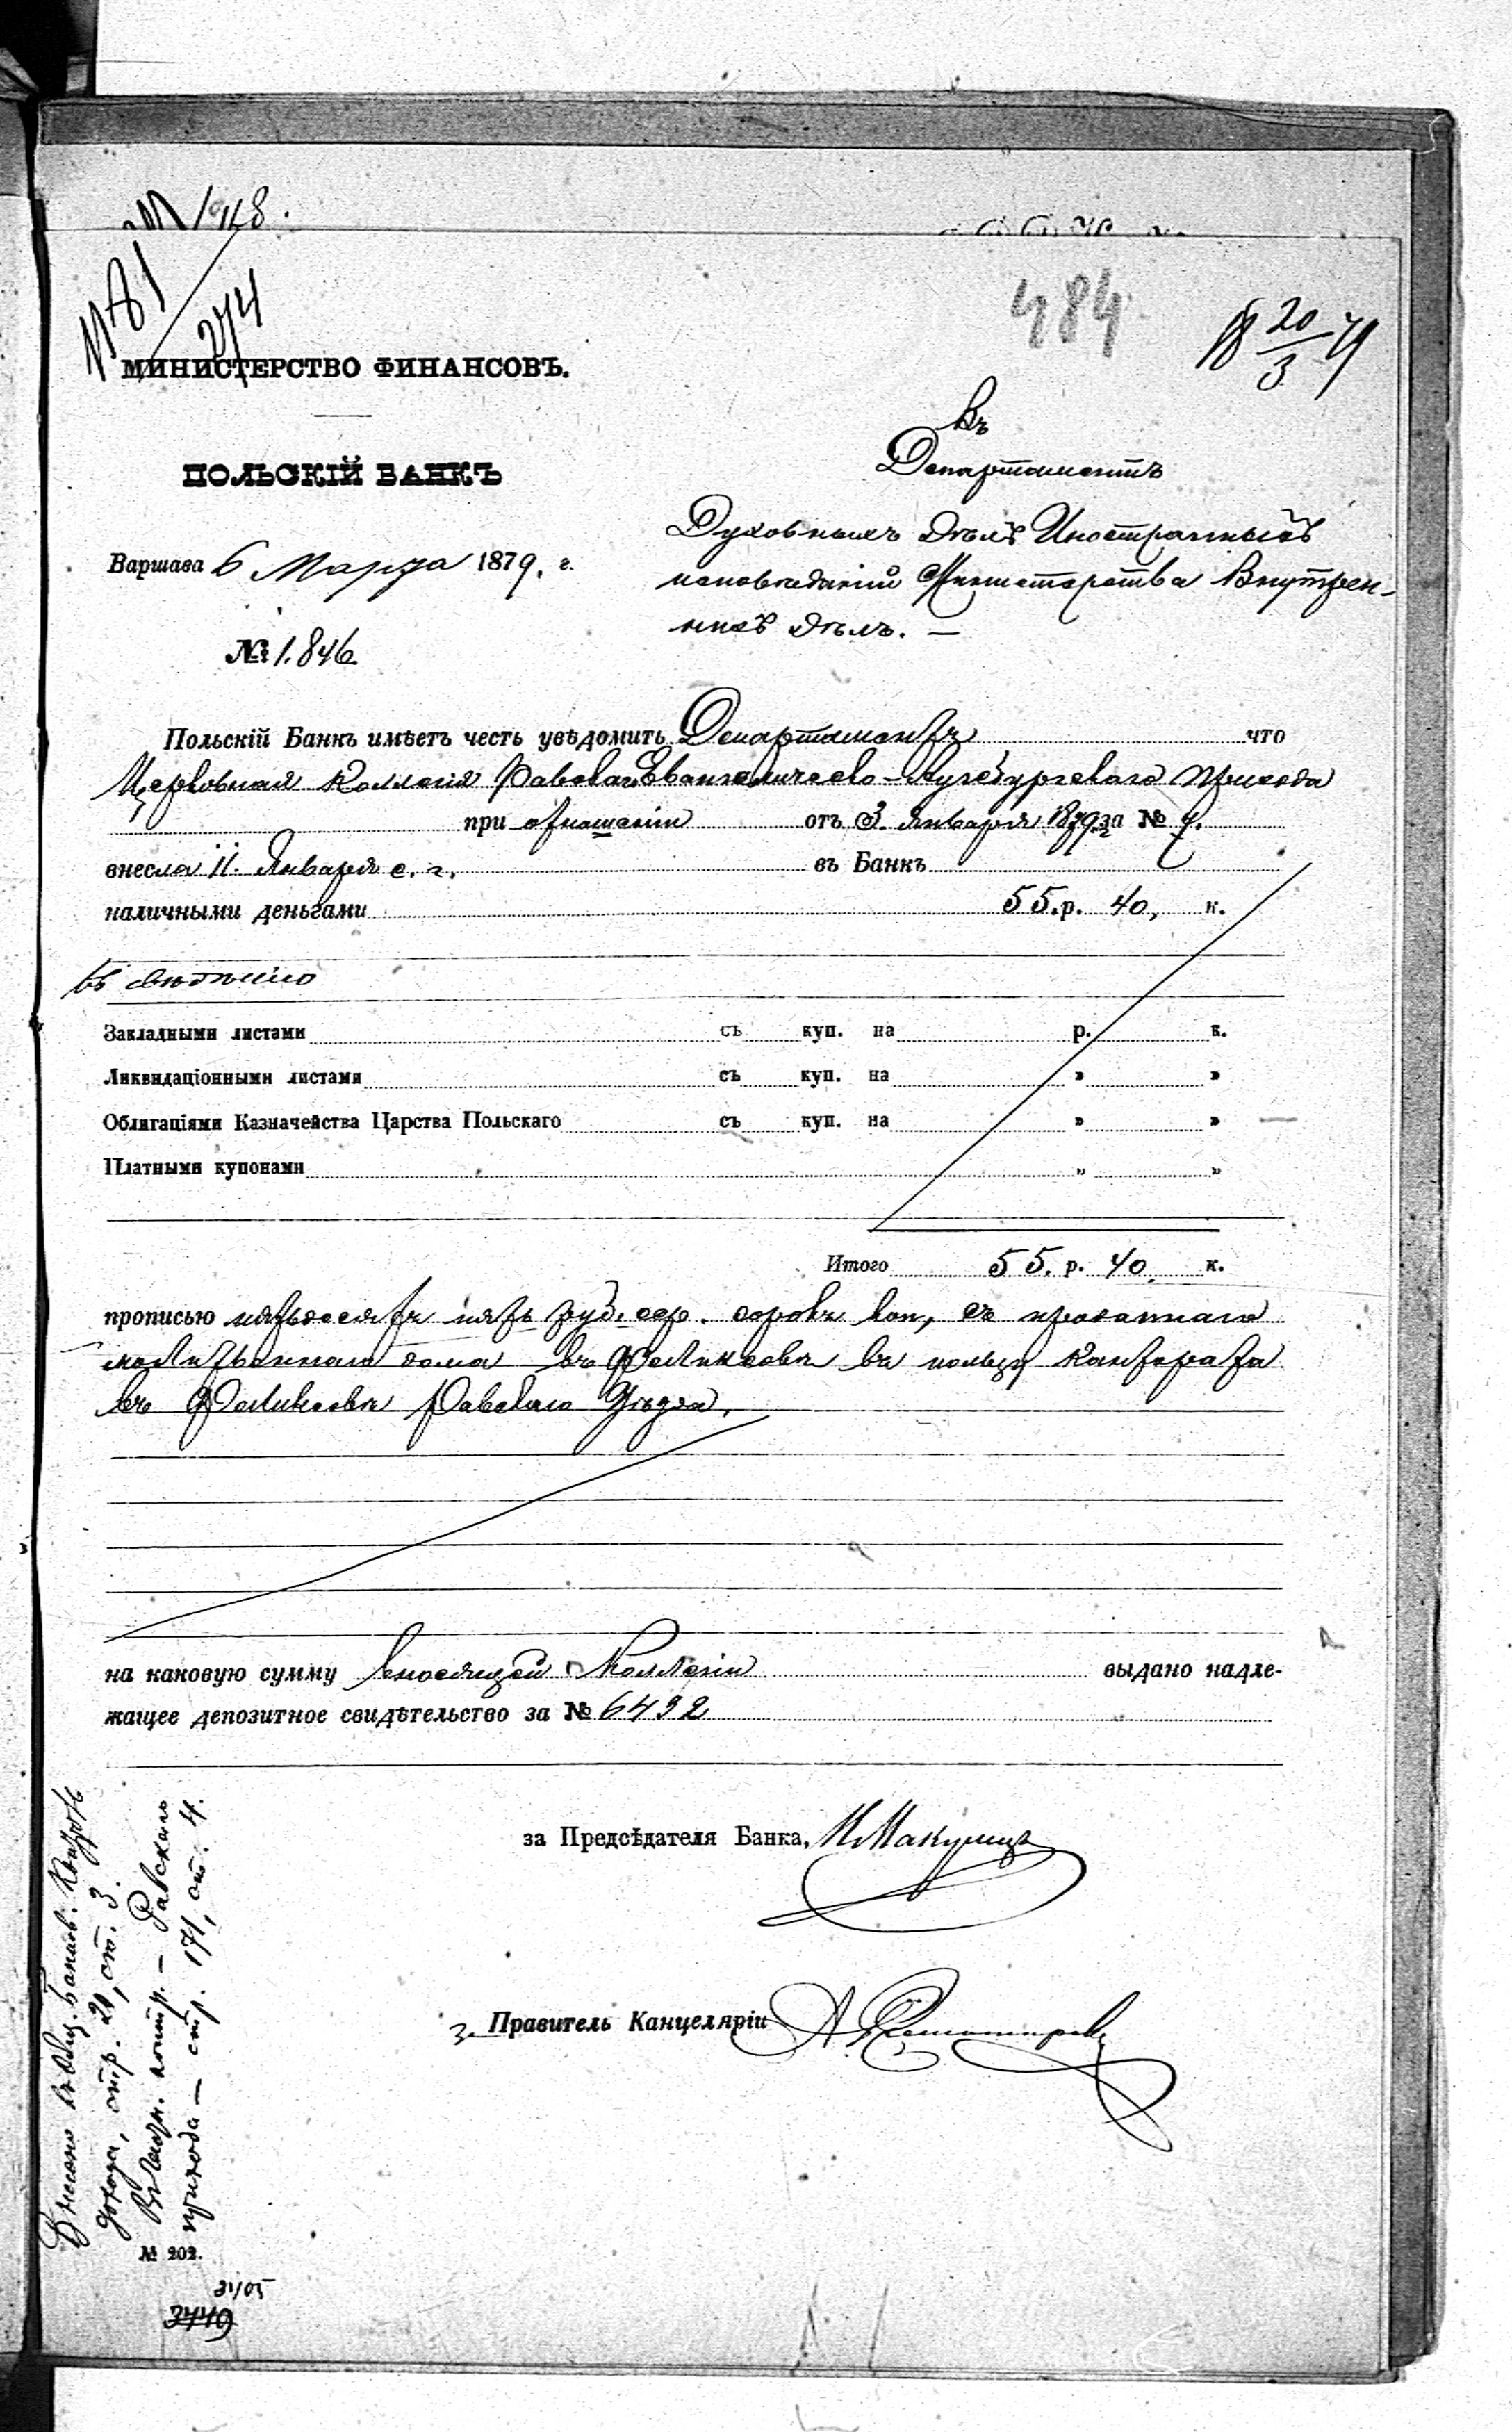 № 81
274
484
18 20/3 79
МИНИСТЕРСТВО ФИНАНСОВЪ.
ПОЛЬСКІЙ БАНКЪ
Варшава 6 Марта 1879. г.
№ 1.846.
Въ
Департаментъ
Духовныхъ Дѣлъ Иностранныхъ
исповѣданій Министерства Внутрен-
нихъ Дѣлъ. —
Польскій Банкъ имѣетъ честь увѣдомить Департаментъ что
Церковная Коллегія Равскаго Евангелическо-Аугсбургскаго прихода
при отношеніи отъ 3. Января 1879 за №
внесла 11. Января с. г. въ Банкъ
наличными деньгами 55. р. 40, к.
въ
Закладными листами съ куп. на р. к.
Ликвидаціонными листами съ куп. на » »
Облигаціями Казначейства Царства Польскаго съ куп. на » »
Платными купонами „ „
Итого 55. р. 40. к.
прописью пятьдесятъ пять руб. сер. сорокъ коп, съ проданнаго
молитвеннаго дома въ Феликсовѣ въ пользу Кантората
въ Феликсовѣ Равскаго Уѣзда.
на каковую сумму вносящей Коллегіи выдано надле-
жащее депозитное свидѣтельство за № 6432
за Предсѣдателя Банка,
за Правитель Канцеляріи
Внесено въ общ. банков. контроль
дохода, стр. 20, ст. 3.
Въ контр. — Равскаго
прихода — стр. 171, ст. 4.
№ 202.
3105
3449